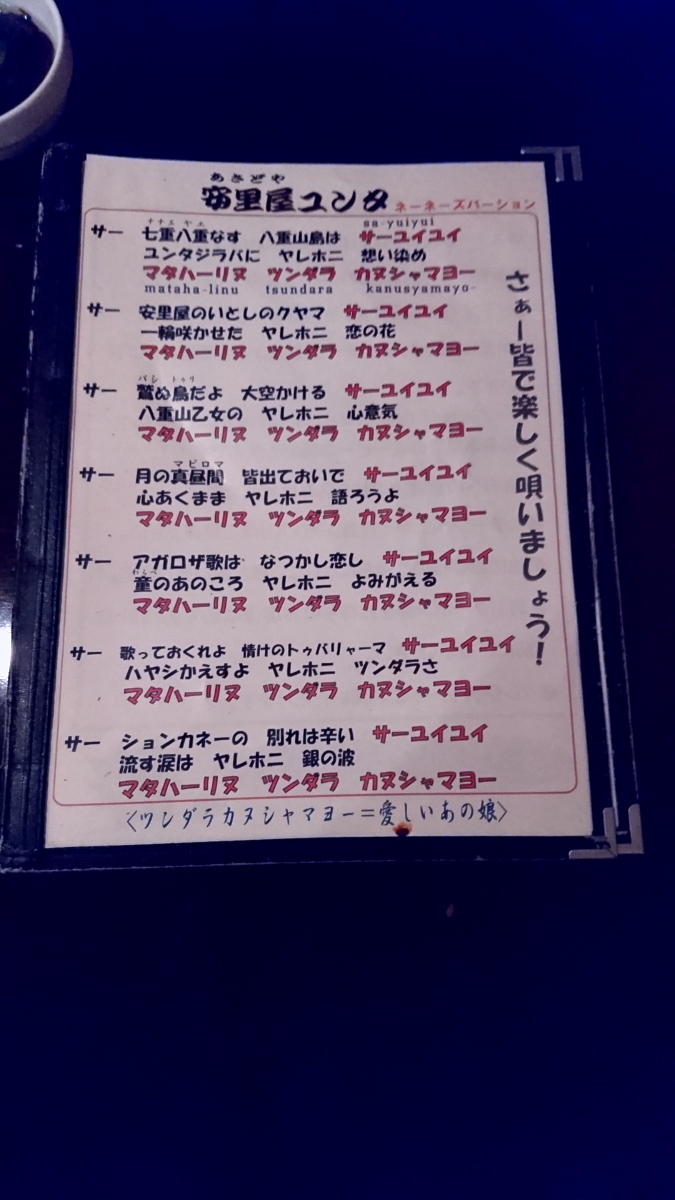 あさどや
安里屋ユンタ ネーネーズバージョン
ナナエ ヤエ sa-yuiyui
サー 七重八重なす 八重山島は サーユイユイ
ユンタジラバに ヤレホニ 想い染め
マタハーリヌ ツンダラ カヌシャマヨー
mataha-linu tsundara kanusyamayo-
サー 安里屋のいとしのクヤマ サーユイユイ
一輪咲かせた ヤレホニ 恋の花
マタハーリヌ ツンダラ カヌシャマヨー
バシ トゥリ
サー 鷲ぬ鳥だよ 大空かける サーユイユイ
八重山乙女の ヤレホニ 心意気
マタハーリヌ ツンダラ カヌシャマヨー
マピロマ
サー 月の真昼間 皆出ておいで サーユイユイ
心あくまま ヤレホニ 語ろうよ
マタハーリヌ ツンダラ カヌシャマヨー
サー アガロザ歌は なつかし恋し サーユイユイ
童のあのころ ヤレホニ よみがえる
マタハーリヌ ツンダラ カヌシャマヨー
サー 歌っておくれよ 情けのトゥバリャーマ サーユイユイ
ハヤシかえすよ ヤレホニ ツンダラさ
マタハーリヌ ツンダラ カヌシャマヨー
サー ションカネーの 別れは辛い サーユイユイ
流す涙は ヤレホニ 銀の波
マタハーリヌ ツンダラ カヌシャマヨー
さぁー皆で楽しく唄いましょう！
〈ツンダラカヌシャマヨー＝愛しいあの娘〉